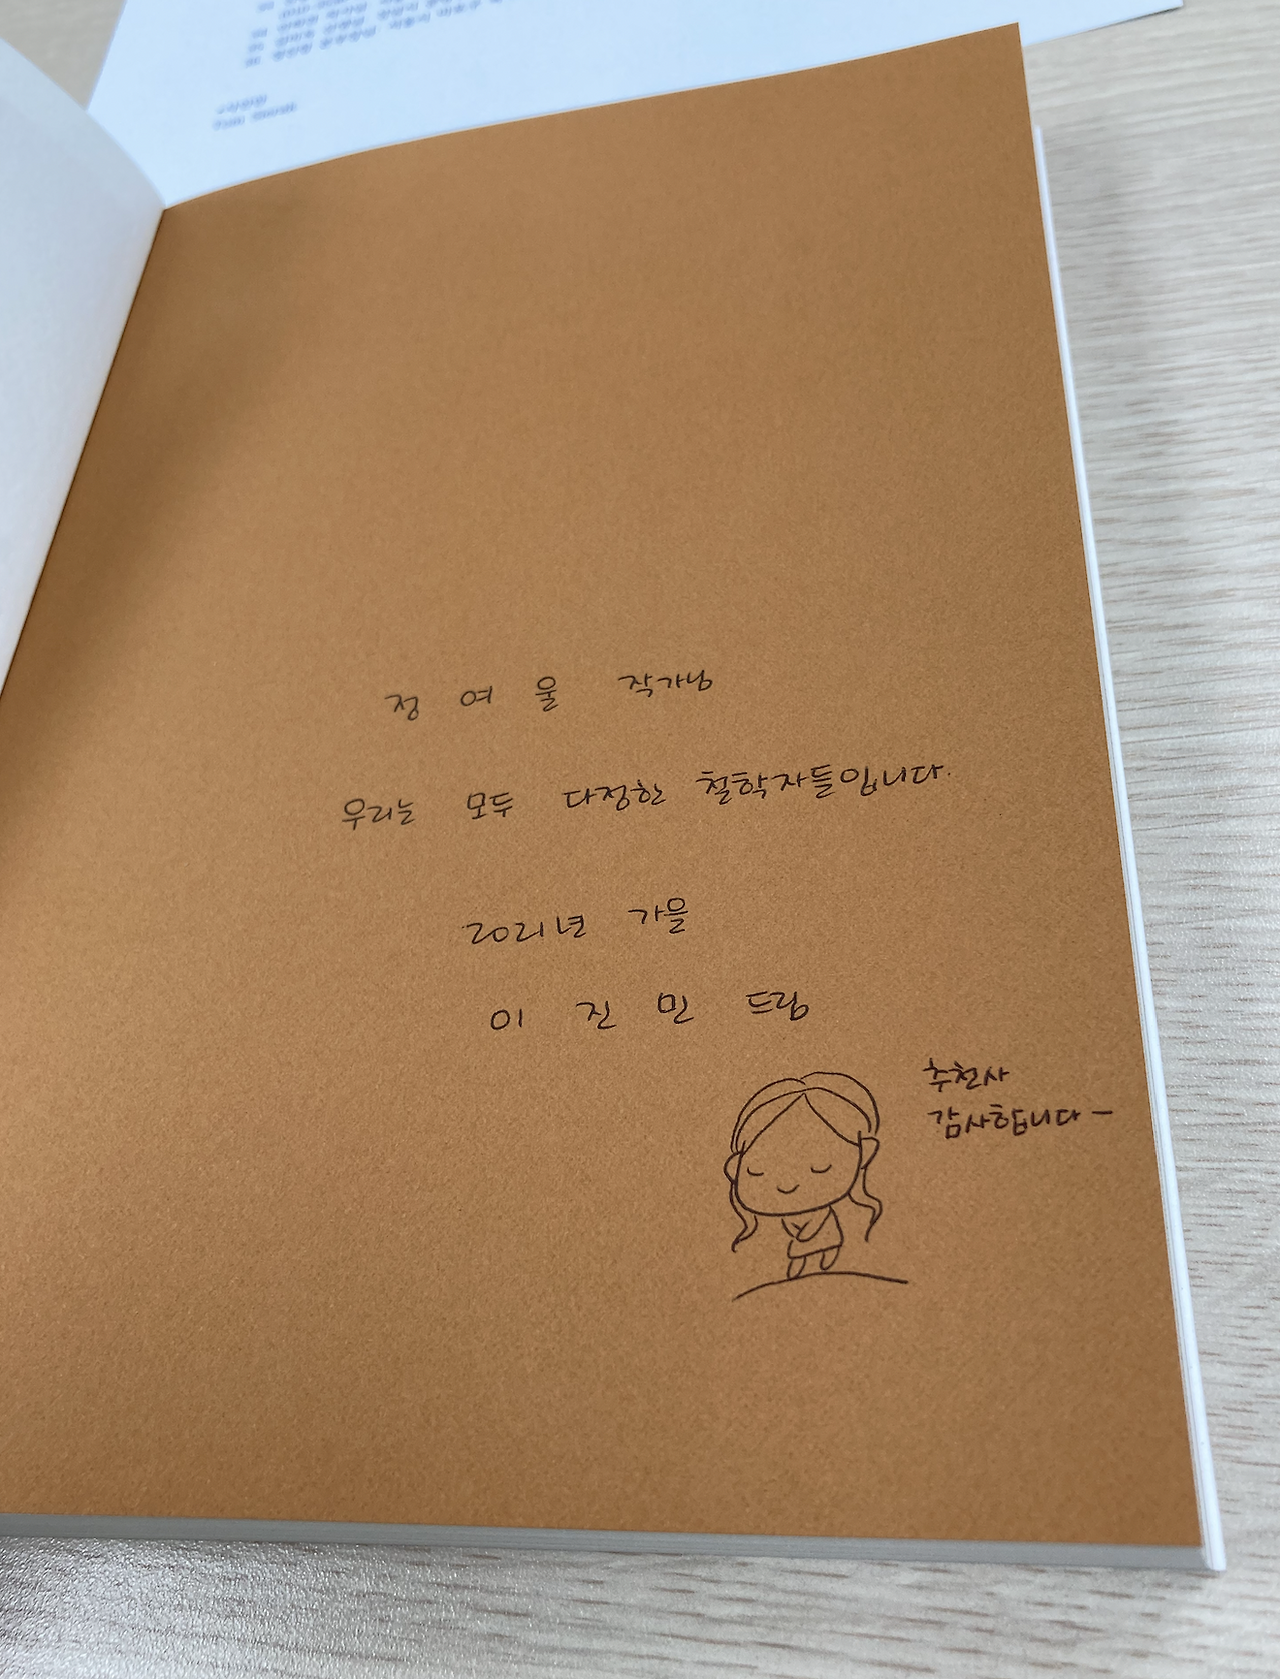 정 여 울 작가님
우리는 모두 다정한 철학자들입니다.
2021년 가을
이 진 민 드림
추천사
감사합니다 -